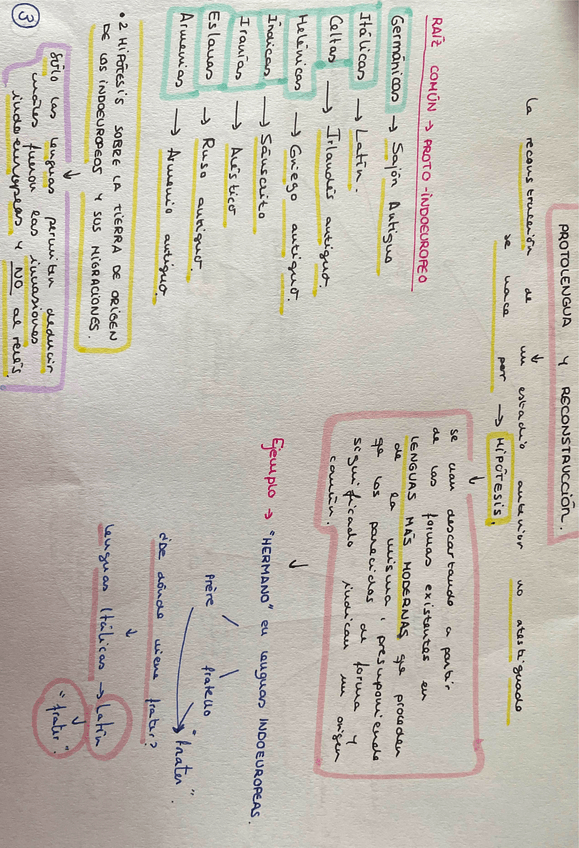 PROTOLENGUA Y RECONSTRUCCIÓN.
La reconstrucción de un estadio anterior no atestiguado
↓
se hace por → HIPÓTESIS.
↓
se van descartando a partir
de las formas existentes en
LENGUAS MÁS MODERNAS qe proceden
de la misma, presuponiendo
qe los parecidos de forma y
significado indican un origen
común.
RAÍZ COMÚN → PROTO-INDOEUROPEO
Germánicas → Sajón Antiguo
Itálicas → Latín.
Celtas → Irlandés antiguo.
Helénicas → Griego antiguo.
Índicas → Sánscrito
Iranias → Avéstico
Eslavas → Ruso antiguo.
Armenias → Armenio antiguo
• 2 HIPÓTESIS SOBRE LA TIERRA DE ORIGEN
DE LOS INDOEUROPEOS Y SUS MIGRACIONES.
↓
Sólo las lenguas permiten deducir
cuáles fueron las invasiones
indoeuropeas y NO al revés.
Ejemplo → "HERMANO" en lenguas INDOEUROPEAS.
↓
frère fratello "frater".
¿De dónde viene frater?
↓
lenguas Itálicas → Latín
↓
"frater".
3